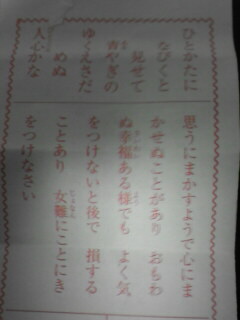 ひとかたに
なびくと
見せて
青やぎの
ゆくえさだ
めぬ
人心かな
思うにまかすようで心にま
かせぬことがあり おもわ
ぬ幸福ある様でも よく気
をつけないと後で 損する
ことあり 女難にことにき
をつけなさい